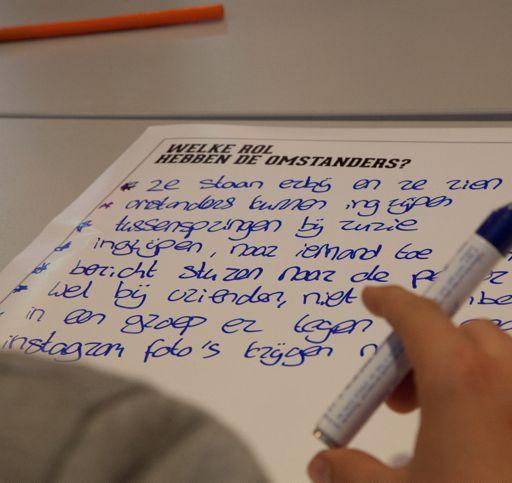 WELKE ROL
HEBBEN DE OMSTANDERS?
* ze staan erbij en ze zien
* omstanders kunnen ingrijpen
* tussenspringen bij ruzie
* ingrijpen, naar iemand toe
* bericht sturen naar de
* wel bij vrienden, niet
in een groep er tegen
instagram foto's krijgen